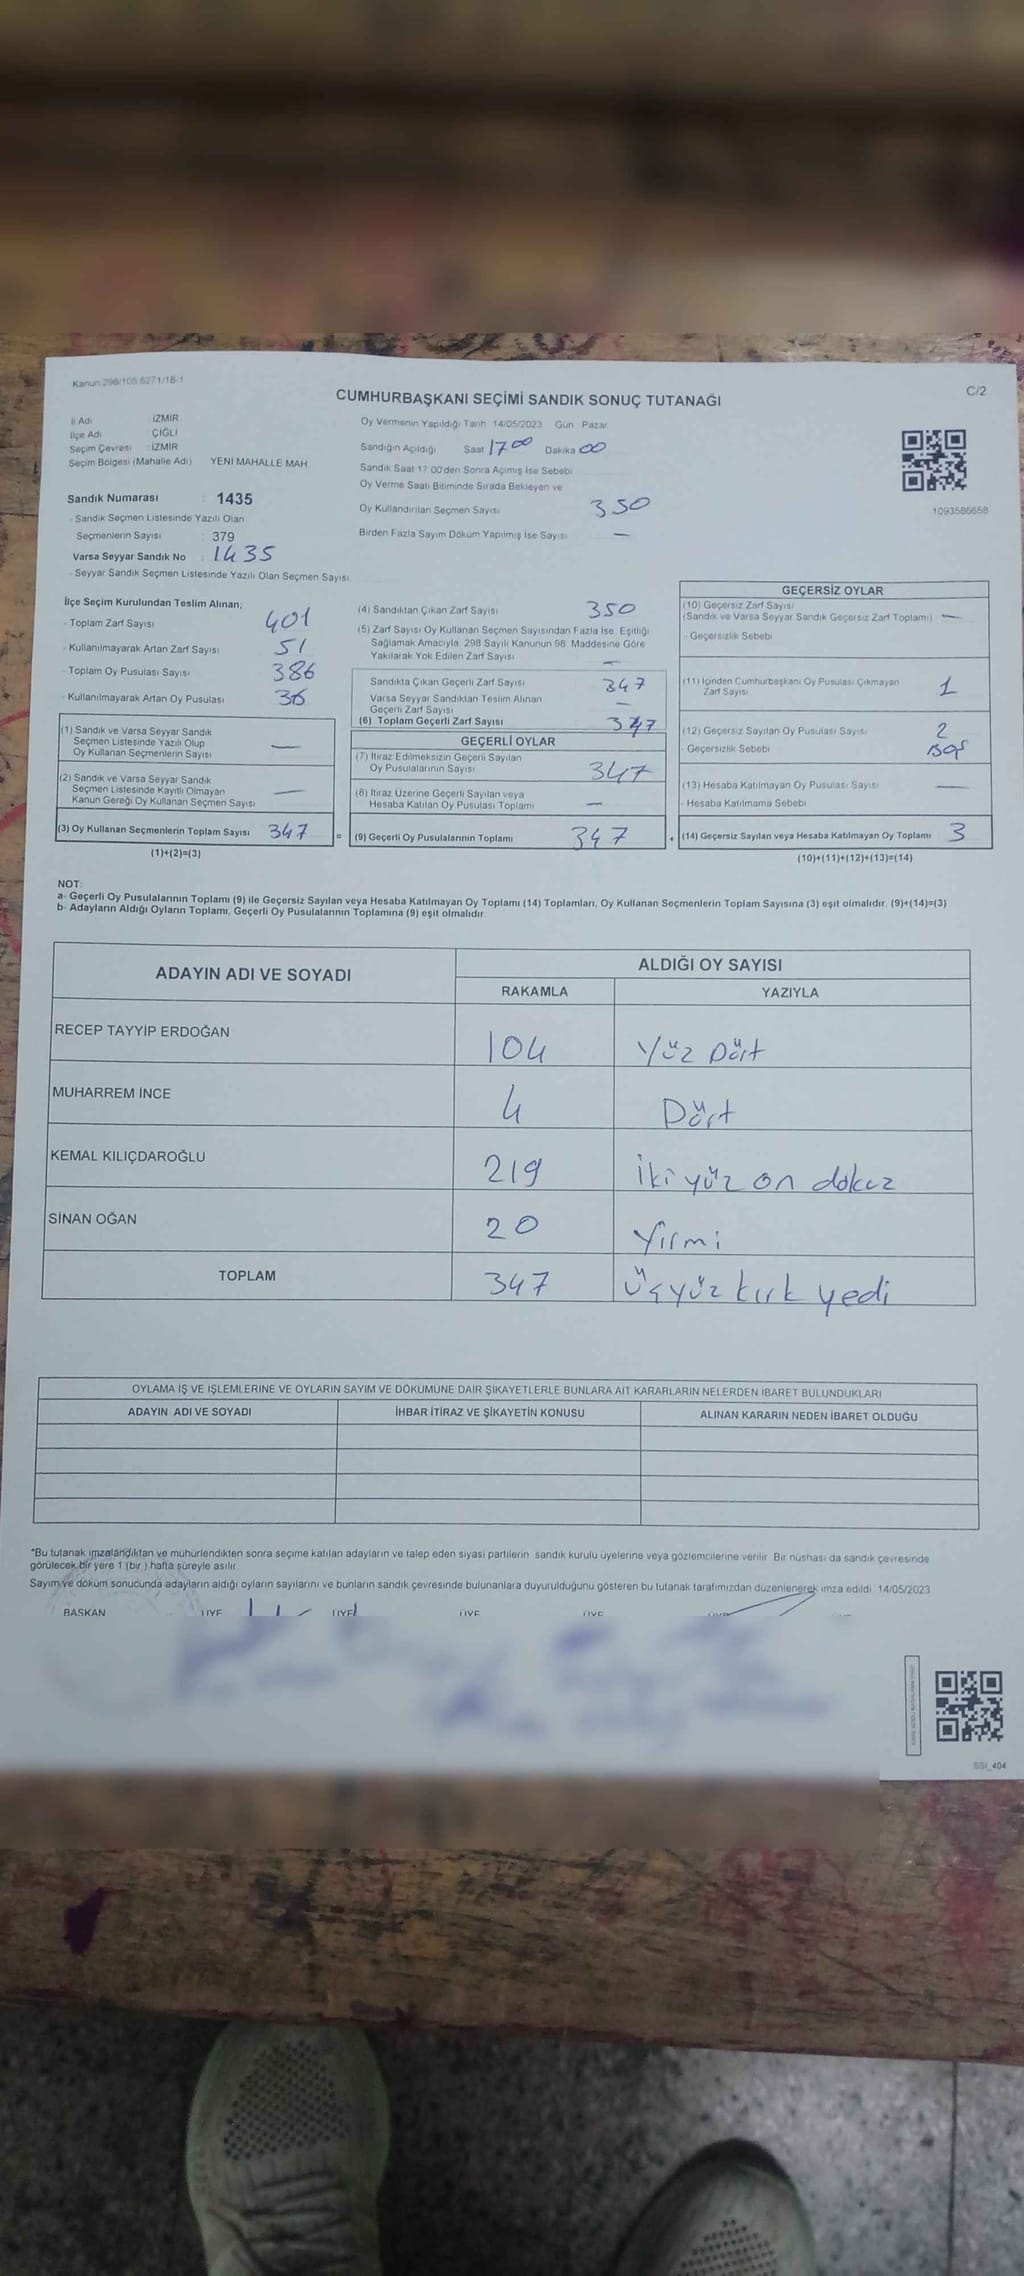 Kanun 298/105 6271/18-1
CUMHURBAŞKANI SEÇİMİ SANDIK SONUÇ TUTANAĞI
C/2
İl Adı : İZMİR
İlçe Adı : ÇİĞLİ
Seçim Çevresi : İZMİR
Seçim Bölgesi (Mahalle Adı) YENİ MAHALLE MAH
Sandık Numarası : 1435
- Sandık Seçmen Listesinde Yazılı Olan
Seçmenlerin Sayısı : 379
Varsa Seyyar Sandık No : 1435
- Seyyar Sandık Seçmen Listesinde Yazılı Olan Seçmen Sayısı
Oy Vermenin Yapıldığı Tarih 14/05/2023 Gün Pazar
Sandığın Açıldığı Saat 17 00 Dakika 00
Sandık Saat 17 00'den Sonra Açılmış İse Sebebi
Oy Verme Saati Bitiminde Sırada Bekleyen ve
Oy Kullandırılan Seçmen Sayısı 350
Birden Fazla Sayım Döküm Yapılmış İse Sayısı —
1093586658
İlçe Seçim Kurulundan Teslim Alınan;
- Toplam Zarf Sayısı 401
- Kullanılmayarak Artan Zarf Sayısı 51
- Toplam Oy Pusulası Sayısı 386
- Kullanılmayarak Artan Oy Pusulası 36
(1) Sandık ve Varsa Seyyar Sandık
Seçmen Listesinde Yazılı Olup
Oy Kullanan Seçmenlerin Sayısı —
(2) Sandık ve Varsa Seyyar Sandık
Seçmen Listesinde Kayıtlı Olmayan
Kanun Gereği Oy Kullanan Seçmen Sayısı —
(3) Oy Kullanan Seçmenlerin Toplam Sayısı 347 =
(1)+(2)=(3)
(4) Sandıktan Çıkan Zarf Sayısı 350
(5) Zarf Sayısı Oy Kullanan Seçmen Sayısından Fazla İse, Eşitliği
Sağlamak Amacıyla, 298 Sayılı Kanunun 98. Maddesine Göre
Yakılarak Yok Edilen Zarf Sayısı —
Sandıkta Çıkan Geçerli Zarf Sayısı 347
Varsa Seyyar Sandıktan Teslim Alınan
Geçerli Zarf Sayısı —
(6) Toplam Geçerli Zarf Sayısı 347
GEÇERLİ OYLAR
(7) İtiraz Edilmeksizin Geçerli Sayılan
Oy Pusulalarının Sayısı 347
(8) İtiraz Üzerine Geçerli Sayılan veya
Hesaba Katılan Oy Pusulası Toplamı —
(9) Geçerli Oy Pusulalarının Toplamı 347 +
GEÇERSİZ OYLAR
(10) Geçersiz Zarf Sayısı
(Sandık ve Varsa Seyyar Sandık Geçersiz Zarf Toplamı) —
- Geçersizlik Sebebi
(11) İçinden Cumhurbaşkanı Oy Pusulası Çıkmayan
Zarf Sayısı 1
(12) Geçersiz Sayılan Oy Pusulası Sayısı 2
- Geçersizlik Sebebi Boş
(13) Hesaba Katılmayan Oy Pusulası Sayısı —
- Hesaba Katılmama Sebebi
(14) Geçersiz Sayılan veya Hesaba Katılmayan Oy Toplamı 3
(10)+(11)+(12)+(13)=(14)
NOT:
a- Geçerli Oy Pusulalarının Toplamı (9) ile Geçersiz Sayılan veya Hesaba Katılmayan Oy Toplamı (14) Toplamları, Oy Kullanan Seçmenlerin Toplam Sayısına (3) eşit olmalıdır. (9)+(14)=(3)
b- Adayların Aldığı Oyların Toplamı, Geçerli Oy Pusulalarının Toplamına (9) eşit olmalıdır.
ADAYIN ADI VE SOYADI
ALDIĞI OY SAYISI
RAKAMLA YAZIYLA
RECEP TAYYİP ERDOĞAN 104 Yüz Dört
MUHARREM İNCE 4 Dört
KEMAL KILIÇDAROĞLU 219 İki yüz on dokuz
SİNAN OĞAN 20 Yirmi
TOPLAM 347 Üçyüz kırk yedi
OYLAMA İŞ VE İŞLEMLERİNE VE OYLARIN SAYIM VE DÖKÜMÜNE DAİR ŞİKAYETLERLE BUNLARA AİT KARARLARIN NELERDEN İBARET BULUNDUKLARI
ADAYIN ADI VE SOYADI İHBAR İTİRAZ VE ŞİKAYETİN KONUSU ALINAN KARARIN NEDEN İBARET OLDUĞU
*Bu tutanak imzalandıktan ve mühürlendikten sonra seçime katılan adayların ve talep eden siyasi partilerin sandık kurulu üyelerine veya gözlemcilerine verilir. Bir nüshası da sandık çevresinde
görülecek bir yere 1 (bir ) hafta süreyle asılır.
Sayım ve döküm sonucunda adayların aldığı oyların sayılarını ve bunların sandık çevresinde bulunanlara duyurulduğunu gösteren bu tutanak tarafımızdan düzenlenerek imza edildi. 14/05/2023
BAŞKAN ÜYE ÜYE ÜYE ÜYE
SSI_404